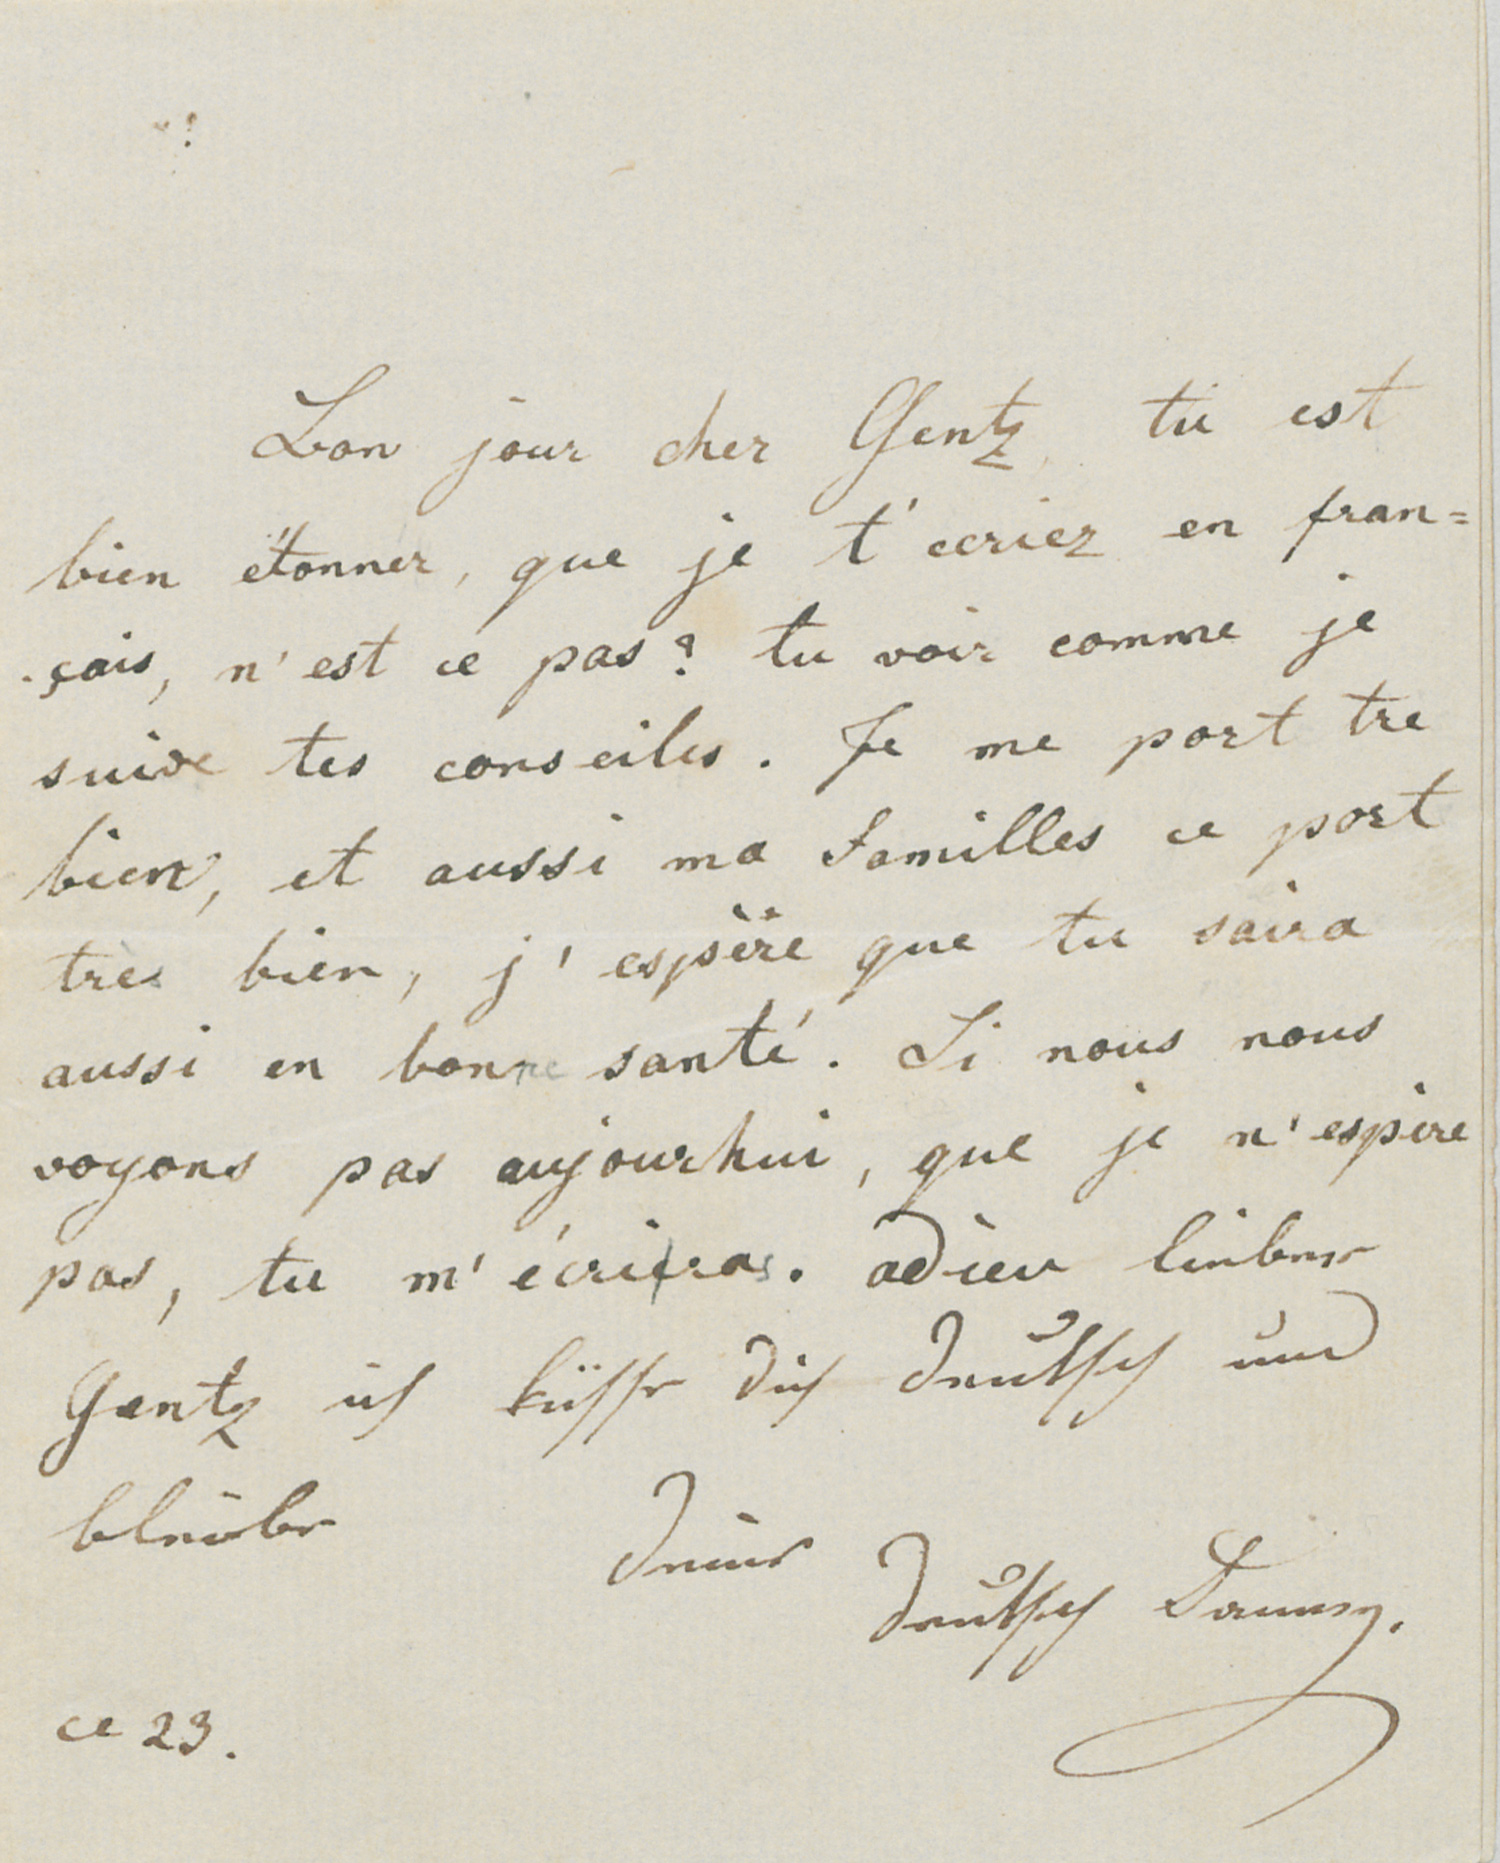 Bon jour cher Gentz, tu est
bien étonner, que je t'ecriez en fran=
çais, n'est ce pas? tu voir comme je
suive tes conseiles. Je me port tre
bien, et aussi ma familles ce port
très bien, j'espère que tu saira
aussi en bonne santé. Si nous nous
voyons pas aujourhui, que je n'espère
pas, tu m'écriras. adieu lieber
Gentz ich küsse dich deutsch und
bleibe deine
deutsch Fanny.
ce 23.